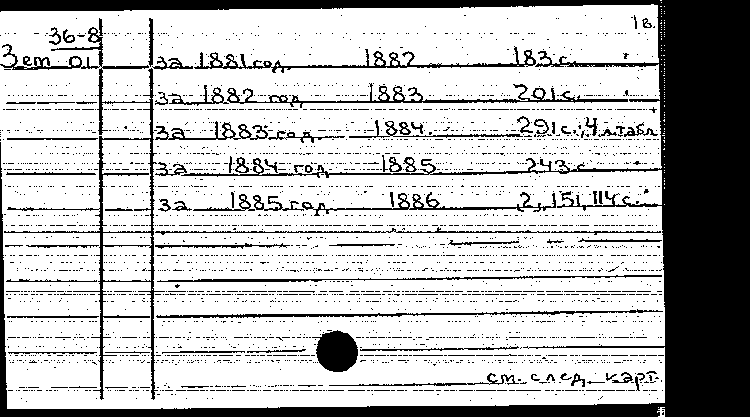 1в.
36-8
Зет 01
за 1881 год 1882 183 с.
за 1882 год 1883 201 с.
за 1883 год 1884 291 с., 4 л.табл
за 1884 год 1885 243 с.
за 1885 год 1886 2, 151, 114 с.
см. след. карт.